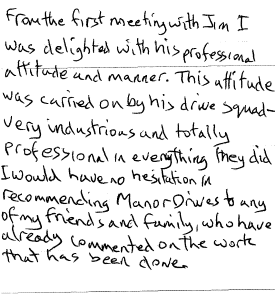 From the first meeting with Jim I
was delighted with his professional
attitude and manner. This attitude
was carried on by his drive squad-
very industrious and totally
professional in everything they did
I would have no hesitation in
recommending Manor Drives to any
of my friends and family, who have
already commented on the work
that has been done.